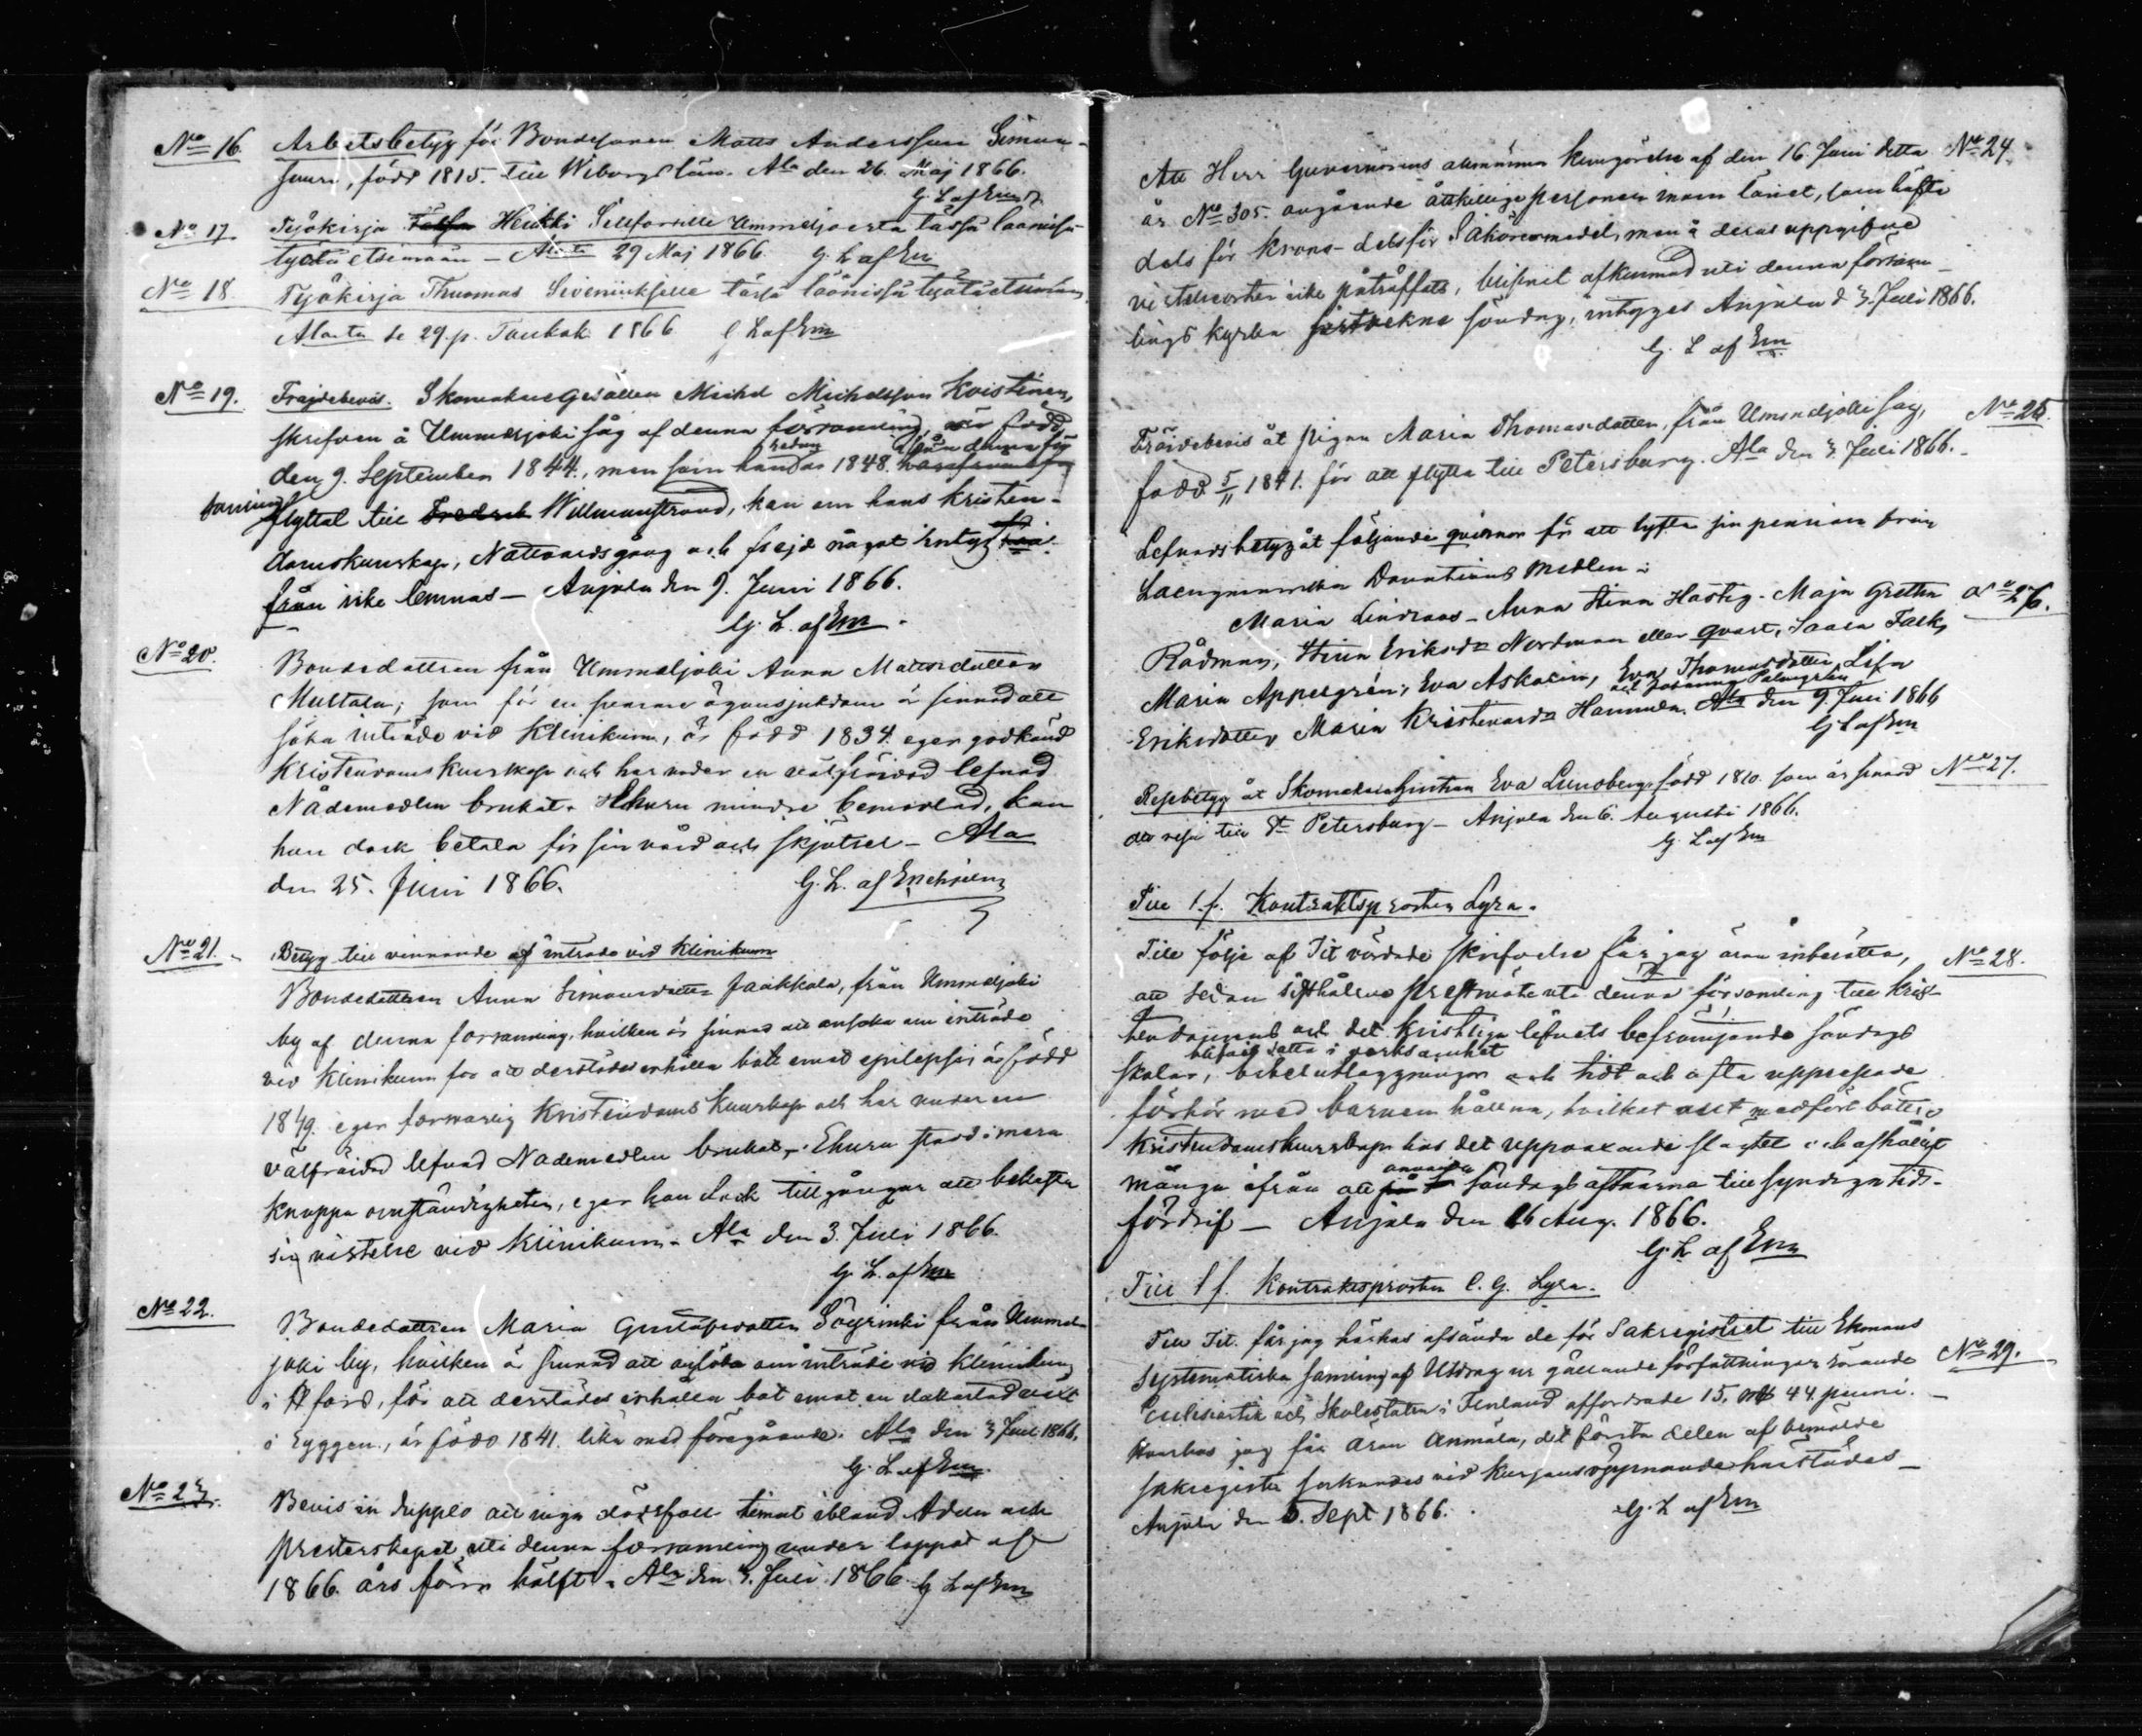 No 16. Arbetsbetyg för Bondesonen Matts Andersson Simon-
souri, född 1815. till Wiborgs län. Ala den 26. Maj 1866.
G. L. af Enn
No 17. Työkirja Heikki Ummeljoesta tässä läänissä
työtä etsimään — Alasta 29 Maj 1866. G. L. af Enn
No 18. Työkirja Thuomas tässä läänissä työtä etsimään
Alasta se 29. p. Toukok. 1866 G. L. af Enn
No 19. Frejdebevis. Skomakaregesällen Michel Michelsson Koistinen,
skrifven å Ummeljoki såg af denna församling, är född
den 9. September 1844., men som redan 1848. från denna för
samling flyttat till Willmanstrand, kan om hans kristen-
domskunskap, Nattvardsgång och frejd något intyg här
från icke lemnas — Anjala den 9. Juni 1866.
G. L. af Enn.
No 20. Bondedottren från Ummeljoki Anna Mattsdotter
Multala, som för en svårare ögonsjukdom är sinnad att
söka inträde vid Klinikum, är född 1834. eger godkänd
Kristendomskunskap och har under en välfräjdad lefnad
Nådemedlen brukat. Ehuru mindre bemedlad, kan
hon dock betala för sin vård och skjötsel — Ala
den 25. Juni 1866. G. L. af Enehjelm
No 21. Betyg till vinnande af inträde vid Klinikum
Bondedottren Anna Simonsdotter Jaakkola, från Ummeljoki
by af denna församling, hvilken är sinnad att ansöka om inträde
vid Klinikum för att derstädes erhålla bot emot epilepsi är född
1849. eger försvarlig Kristendoms Kunskap och har under en
välfräidad lefnad Nådemedlen brukat. Ehuru stadd i mera
knappa omständigheter, eger hon dock tillgångar att bekosta
sin vistelse vid Klinikum. Ala den 3. Juli 1866.
G. L. af Enn
No 22. Bondedottren Maria Gustafsdotter Söyrinki från Ummel-
joki by, hvilken är sinnad att ansöka om inträde vid Klinikum
i Hfors, för att derstädes erhålla bot emot en växt
i ryggen, är född 1841. lika med föregående. Ala den 3 Juli 1866.
G. L. af Enn.
No 23. Bevis in duplo att inga dödsfall timat ibland Adeln och
presterskapet uti denna församling under loppet af
1866. års förra hälft. Ala den 3. Juli 1866. G. L. af Enn
Att Herr Guvernörens allmänna kungörelse af den 16. Juni detta No 24.
år No 305. angående åtskillige personer inom länet, som häfta
dels för krono- dels för Saköresmedel, men å deras uppgifne
vistelseorter icke påträffats, blifvit afkunnad uti denna försam-
lings kyrka sistvekne söndag, intygges Anjala d. 3. Juli 1866.
G. L. af Enn
Fräjdebevis åt pigan Maria Thomasdotter, från Ummeljoki såg, No 25.
född 5/11 1841. för att flytta till Petersburg. Ala den 3. Juli 1866.
Lefnadsbetyg åt följande qvinnor för att lyfta sin pension från
Donations medlen:
Maria Lindroos - Anna Stina Hastig - Maja Gretha No 26.
Rådman, Stina Eriksdr Nordman eller Qvast, Saara Falk,
Maria Appelgrén, Eva Askolin, Eva Thomasdotter, Lisa
och Johanna Palmgrén
Eriksdotter Maria Kristersdr Hannula. Ala den 9. Juli 1866
G. L. af Enn
Resebetyg åt Skomakareenkan Eva Lundberg, född 1810. som är sinnad No 27.
att resa till St Petersburg — Anjala den 6. Augusti 1866.
G. L. af Enn
Till t. f. Kontraktsprosten Lyra.
Till följe af Tit vördade skrifvelse får jag äran inberätta, No 28.
att sedan sisthållne prestmöte uti denna församling till Kris-
tendomens och det kristliga lifvets befrämjande söndags
blifvit satta i verksamhet
skolor, bibelutläggningar och tidt och ofta upprepade
förhör med barnen hållna, hvilket allt medfört bättre
Kristendomskunskap hos det uppvexande slägtet och afhållit
många ifrån att använda söndagsaftnarna till syndiga tids-
fördrif — Anjala den 16 Aug. 1866.
G. L. af Enn
Till t. f. Kontraktsprosten C. G. Lyra.
Till Tit. får jag härhos afsända de för Sakregistret till Ekmans
systematiska samling af Utdrag ur gällande författningar rörande No 29.
Ecklesiastik och Skolestaten i Finland affordrade 15. mk 44. penni.
Hvarhos jag får äran Anmäla, det första delen af bemälde
sakregister saknades vid härstädes —
Anjala den 5. Sept 1866. G. L. af Enn